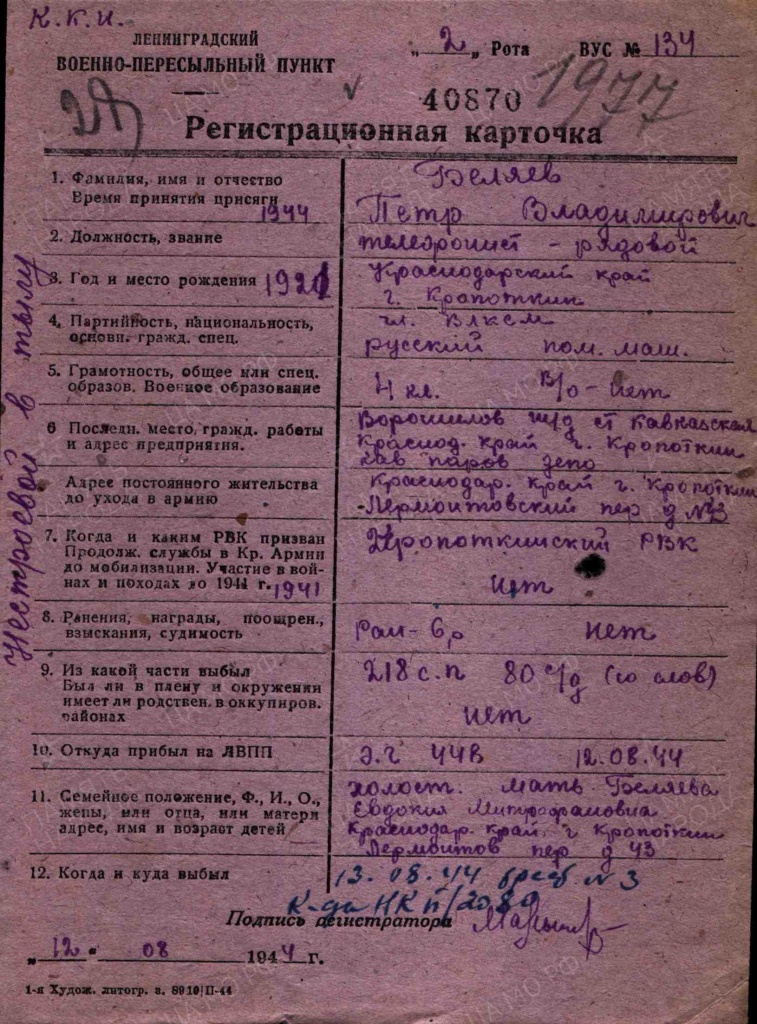 К.К.И.
ЛЕНИНГРАДСКИЙ
ВОЕННО-ПЕРЕСЫЛЬНЫЙ ПУНКТ
„ 2 „ Рота ВУС № 134
40870 1977
Регистрационная карточка
Нестроевой в тылу
1. Фамилия, имя и отчество Беляев
Время принятия присяги 1944 Петр Владимирович
2. Должность, звание телефонист - рядовой
3. Год и место рождения 1921 Краснодарский край
г. Кропоткин
4. Партийность, национальность, чл. ВЛКСМ
основн. гражд. спец. русский пом. маш.
5. Грамотность, общее или спец.
образов. Военное образование 4 кл. В/о - нет
6 Последн. место гражд. работы Ворошилов ж/д ст Кавказская
и адрес предприятия. Краснод. край г. Кропоткин
кав паров депо
Адрес постоянного жительства Краснодар. край г. Кропоткин
до ухода в армию Лермонтовский пер д №
7. Когда и каким РВК призван Кропоткинский РВК
Продолж. службы в Кр. Армии
до мобилизации. Участие в вой-
нах и походах до 1941 г. 1941 нет
8. Ранения, награды, поощрен.,
взыскания, судимость Ран- нет
9. Из какой части выбыл 218 с.п 80 с/д (со слов)
Был ли в плену и окружении
имеет ли родствен. в оккупиров. нет
районах
10. Откуда прибыл на ЛВПП 44В 12.08.44
11. Семейное положение, Ф., И., О., холост. Мать Беляева
жены, или отца, или матери Евдокия Митрофановна
адрес, имя и возраст детей Краснодар. край. г Кропоткин
Лермонтов пер д 43
12. Когда и куда выбыл 13.08.44 № 3
к-да НКП/2080
Подпись регистратора
„ 12 “ 08 1944 г.
1-я Худож. литогр. з. 8910|П-44